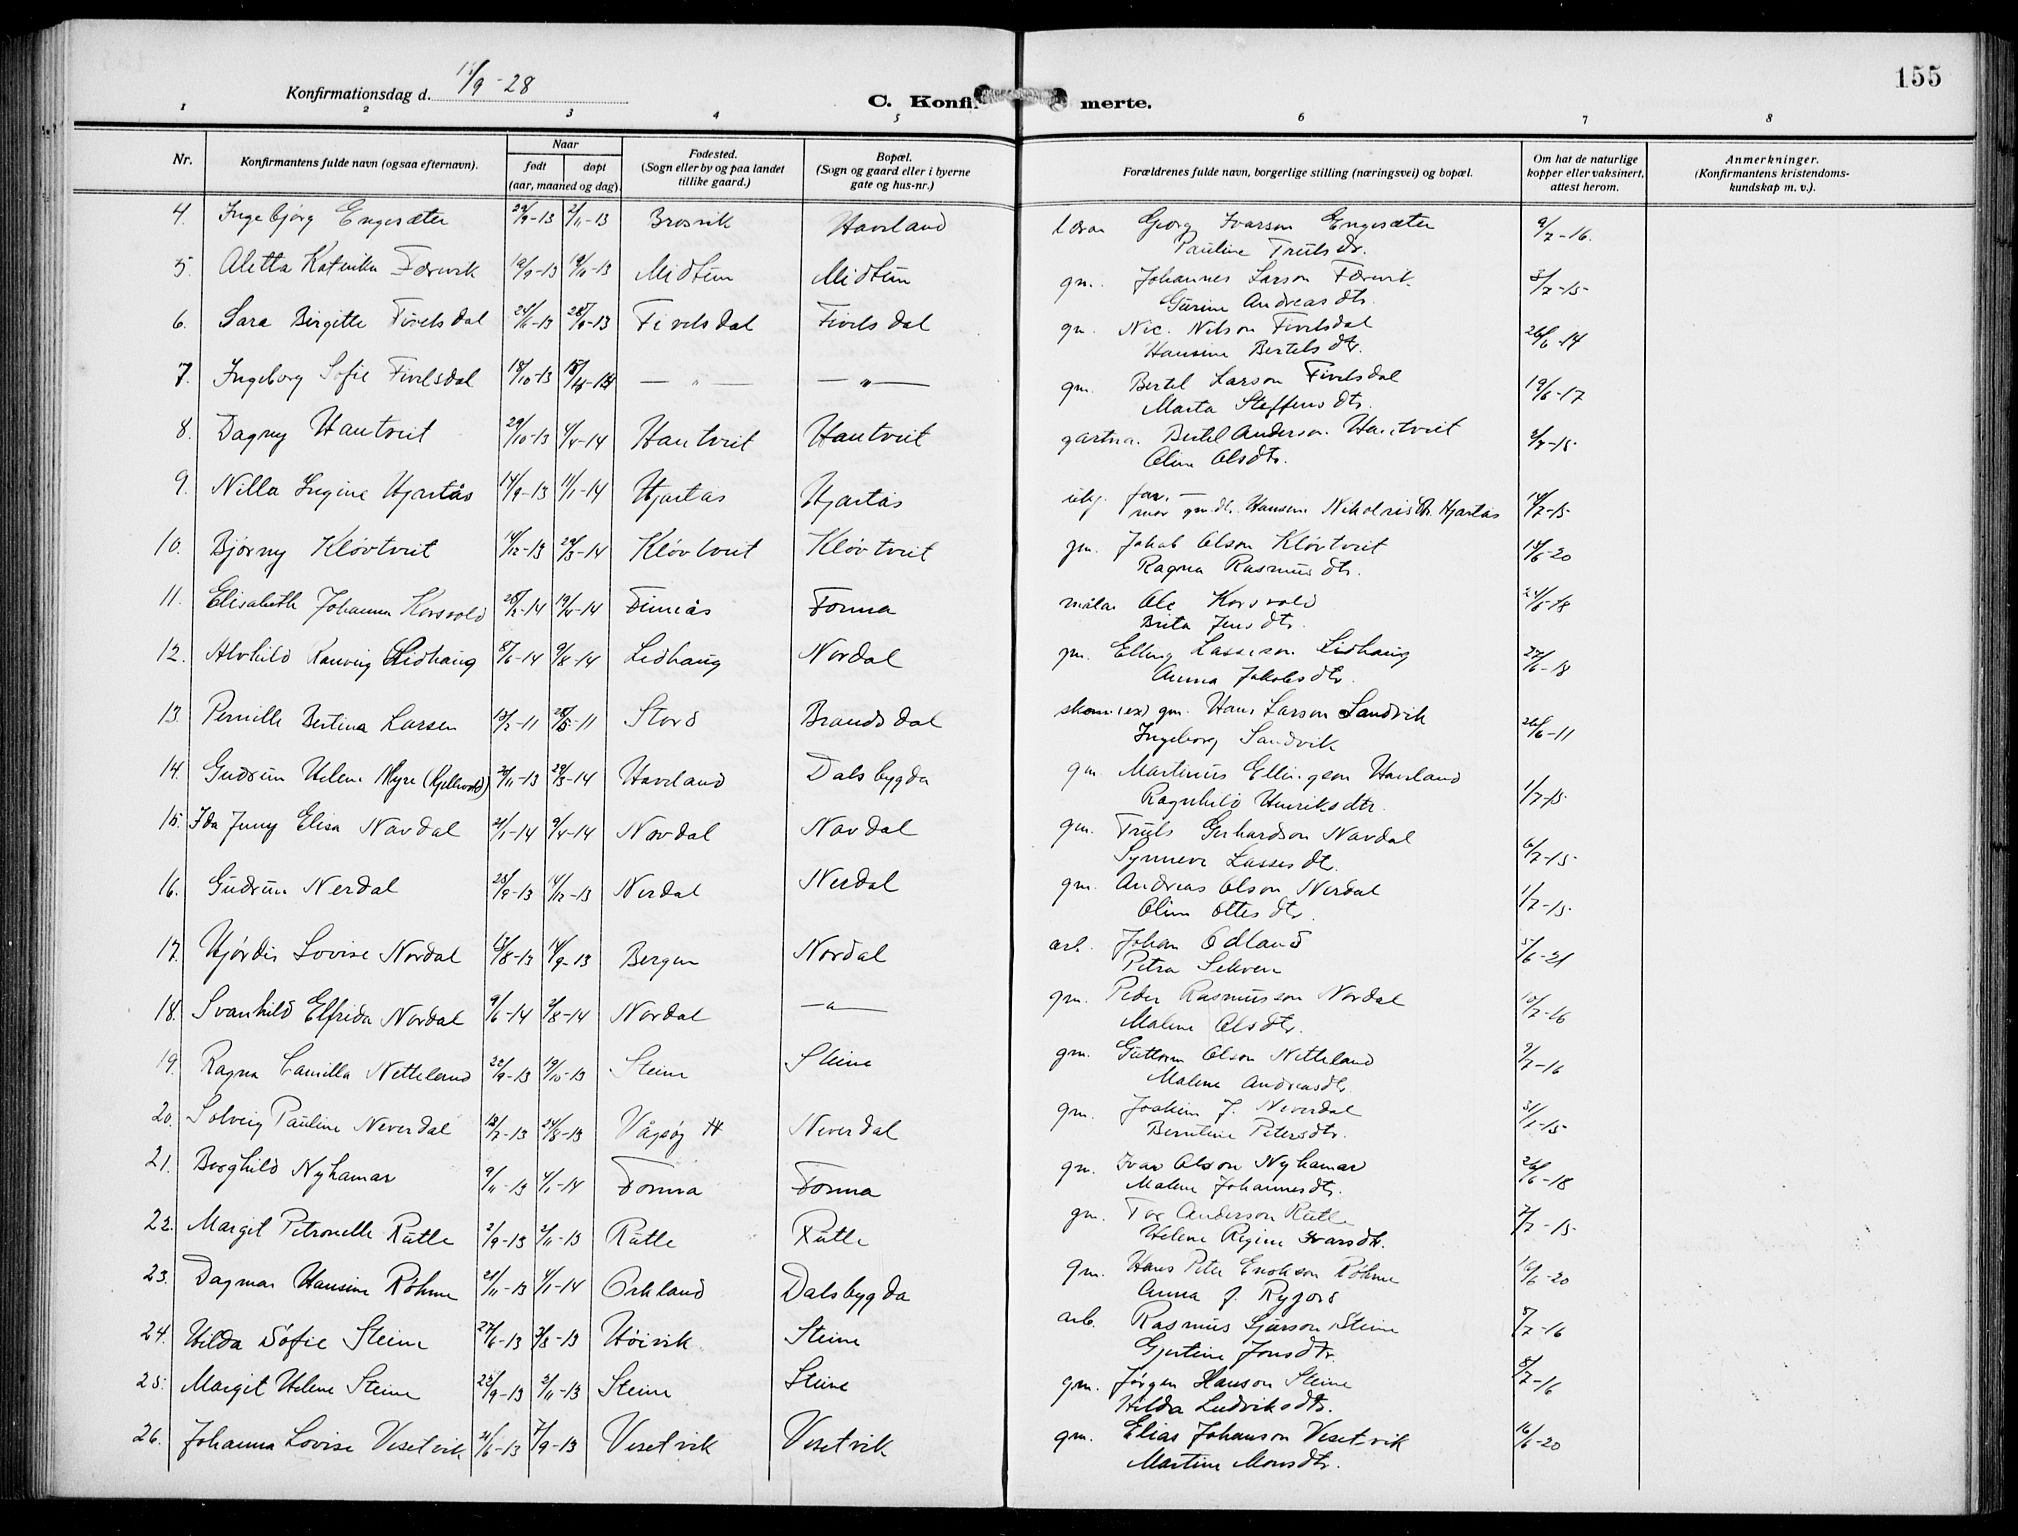 155
Konfirmationsdag d. /9-28
C. Konfirmerte.
1 2 3 4 5 6 7 8
Nr.
Konfirmantens fulde navn (ogsaa efternavn).
Naar
født døpt
(aar, maaned og dag)
Fødested.
(Sogn eller by og paa landet
tillike gaard.)
Bopæl.
(Sogn og gaard eller i byerne
gate og hus-nr.)
Forældrenes fulde navn, borgerlige stilling (næringsvei) og bopæl.
Om hat de naturlige
kopper eller vaksinert,
attest herom.
Anmerkninger.
(Konfirmantens kristendoms-
kundskap m. v.).
4. Ingebjørg Engesæter 29/9-13 2/11-13 Brosvik Haveland lærar Georg Ivarson Engesæter 9/7-16.
Pauline Trulsdr.
5. Aletta Katinka Færevik 19/9-13 Midtun Midtun gm. Johannes Larson Færevik 3/7-15
Gurine Andreasdtr.
6. Sara Birgitte Fivelsdal Fivelsdal Fivelsdal gm. Nic. Nilson Fivelsdal 26/6-14
Hansine Bertelsdtr.
7. Ingeborg Sofie Fivelsdal 18/10-13 — " — — " — gm. Bertel Larson Fivelsdal 19/6-17
Marta Steffensdtr.
8. Dagny Hautveit 29/10-13 Hautveit Hautveit gartnar Bertel Anderson Hautveit
Oline Olsdtr.
9. Nilla Ingine Hjartås 14/9-13 11/1-14 Hjartås Hjartås far. —
mor Hansine Hjartås
10. Bjørny Kløvtveit 14/12-13 Kløvtveit Kløvtveit gm. Jakob Olson Kløvtveit
Ragna Rasmusdtr.
11. Elisabeth Johanna Korsvold Fonna målar Ole Korsvold
Brita Jensdtr.
12. Alvhild Ranveig Lidhaug 8/6-14 9/8-14 Lidhaug Nordal gm. Elling Lasseson Lidhaug 27/6-18
Anna Jakobsdtr.
13. Pernille Bertina Larsen Stord Brandsdal gm. Hans Larson Sandvik 26/6-11
Ingeborg Sandvik
14. Gudrun Helene Myre 29/3-14 Haveland Dalsbygda gm. Martinus Ellingson Haveland 1/7-15
Ragnhild Henriksdtr.
15. Ida Jenny Elisa Navdal Navdal Navdal gm. Truls Gerhardson Navdal 6/7-15
Synneve Lassesdtr.
16. Gudrun Nerdal 14/12-13 Nerdal Nerdal gm. Andreas Olson Nerdal 1/7-15
Oline Ottesdtr.
17. Hjørdis Lovise Nordal 14/9-13 Bergen Nordal arb. Johan Odland 5/6-21
Petra
18. Svanhild Elfrida Nordal 9/6-14 2/8-14 Nordal — " — gm. Peder Rasmusson Nordal 10/7-16
Malene Olsdtr.
19. Ragna Camilla Netteland 22/9-13 19/10-13 Steine Steine gm. Guttorm Olson Netteland 9/7-16
Malene Andreasdtr.
20. Solveig Pauline Neverdal 24/8-13 Vågsøy Neverdal gm. Joakim J. Neverdal
Berntine Petersdtr.
21. Borghild Nyhamar 9/11-13 4/1-14 Fonna Fonna gm. Ivar Olson Nyhamar 26/6-18
Malene Johannesdtr.
22. Margit Petronelle Rutle 2/9-13 2/11-13 Rutle Rutle gm. Tor Anderson Rutle 2/7-15
Helene Regine Ivarsdtr.
23. Dagmar Hansine Røhme 21/11-13 4/1-14 Orkland Dalsbygda gm. Hans Peter Enokson Røhme 16/6-20
Anna J. Rygord
24. Hilda Sofie Steine 27/6-13 3/8-13 Høivik Steine arb. Rasmus Sjurson Steine 5/7-16
Gjertine Jonsdtr.
25. Margit Helene Steine 2/11-13 Steine Steine gm. Jørgen Hanson Steine 8/7-16
Hilda Ludviksdtr.
26. Johanna Lovise Vesetvik 21/6-13 7/9-13 Vesetvik Vesetvik gm. Elias Johanson Vesetvik 16/6-20
Martine Monsdtr.